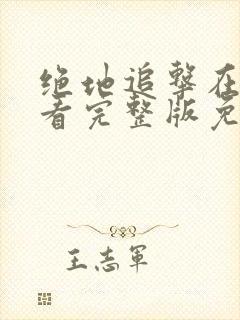 绝地追击在
看完整版免
王志軍